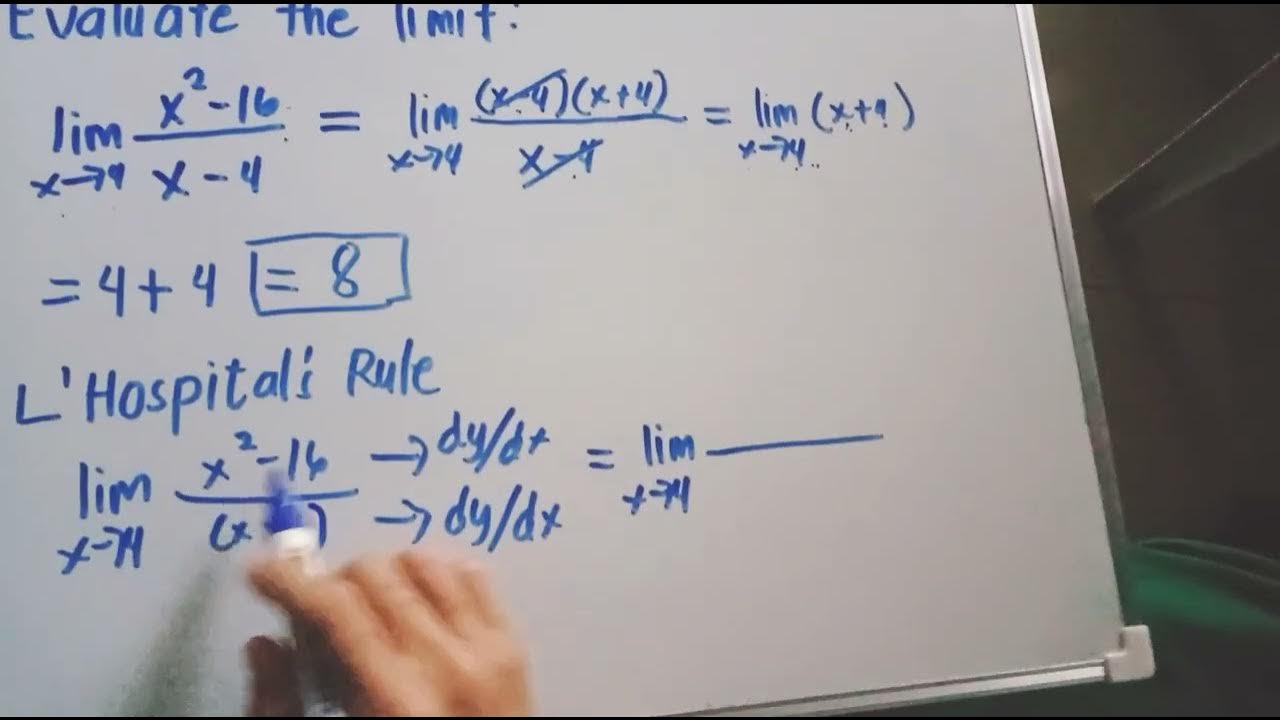 Evaluate the limit:
lim x→4 x²-16 / x-4 = lim x→4 (x-4)(x+4) / x-4 = lim x→4 (x+4)
= 4+4 = 8
L'Hospital's Rule
lim x→4 x²-16 / (x ) → dy/dx → dy/dx = lim x→4